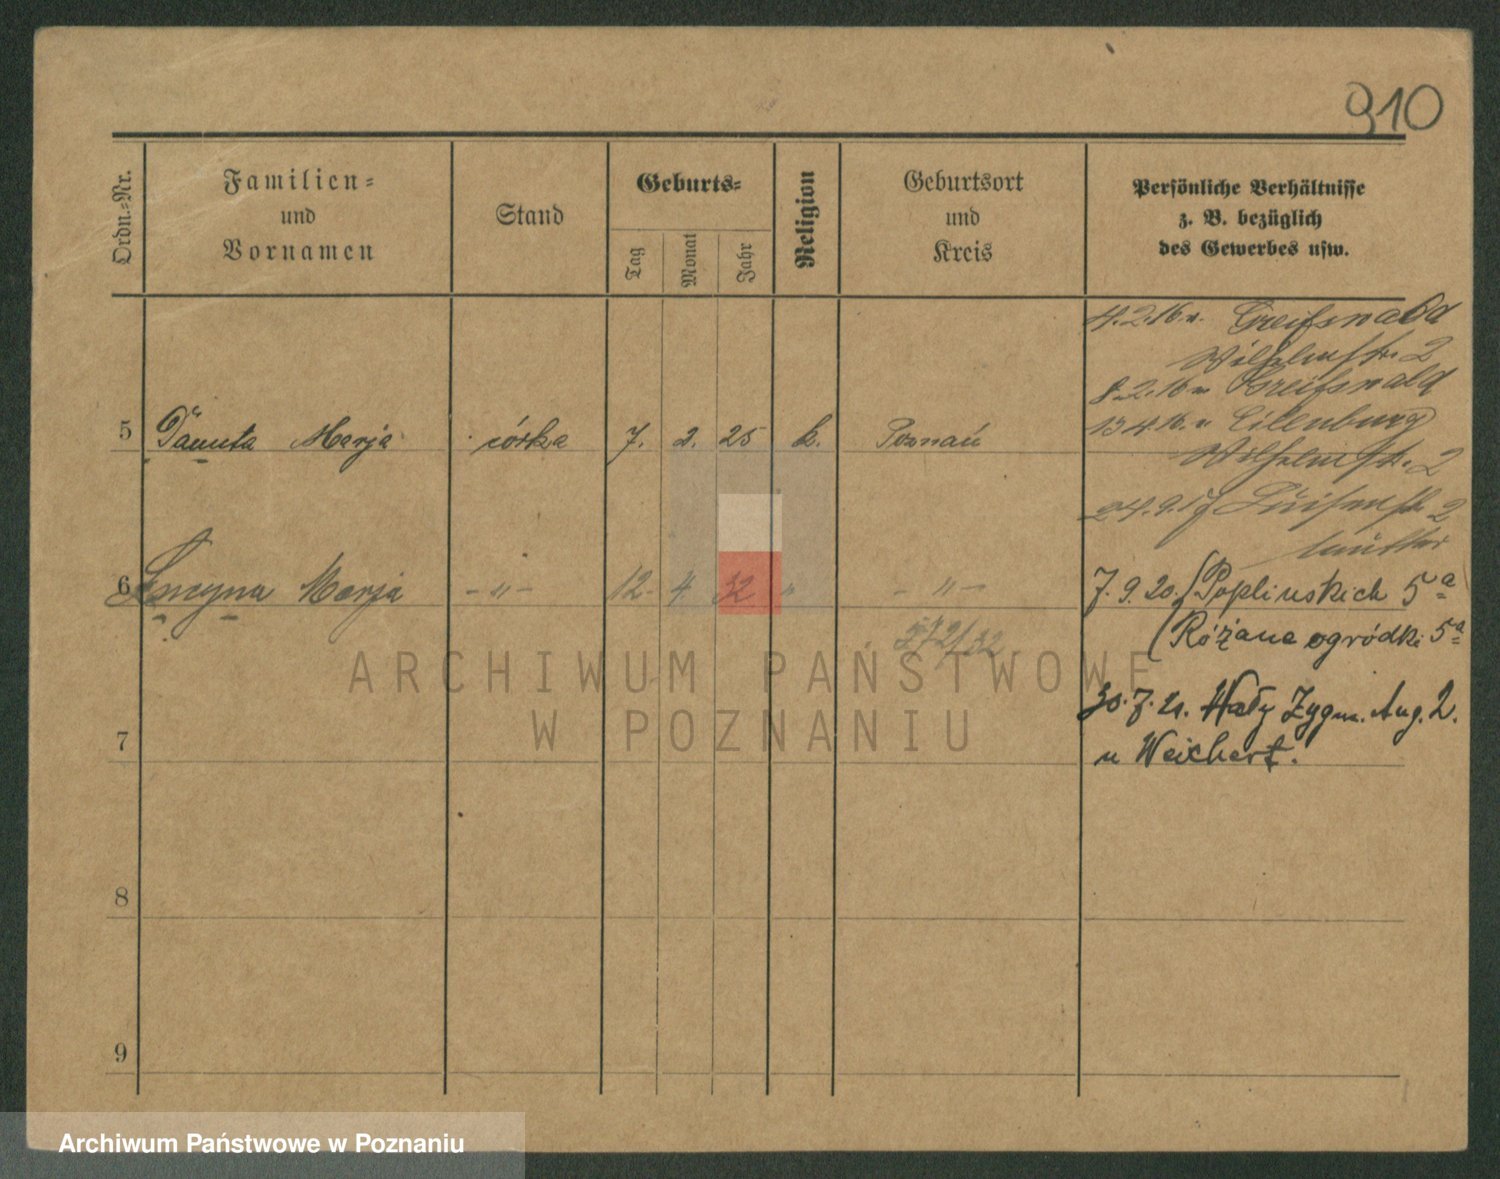 910
Ordn.-Nr.
Familien-
und
Vornamen
Stand
Geburts-
Tag
Monat
Jahr
Religion
Geburtsort
und
Kreis
Persönliche Verhältnisse
z. B. bezüglich
des Gewerbes usw.
4.2.16 n. Greifswald
Wilhelmstr. 2
8.2.16 Greifswald
13 4 16 n Eilenburg
Wilhelmstr. 2
5 Danuta Marja córka 7. 2. 25 k. Poznań
24.9.17 Luisenstr. 2
6 Lucyna Marja - " - 12. 4 32 " - " -
7.9.20. (Poplińskich 5a
(Różane ogródki 5a
572/32
ARCHIWUM PAŃSTWOWE
W POZNANIU
30.7.21. Wały Zygm. Aug. 2.
u Weichert.
7
8
9
Archiwum Państwowe w Poznaniu